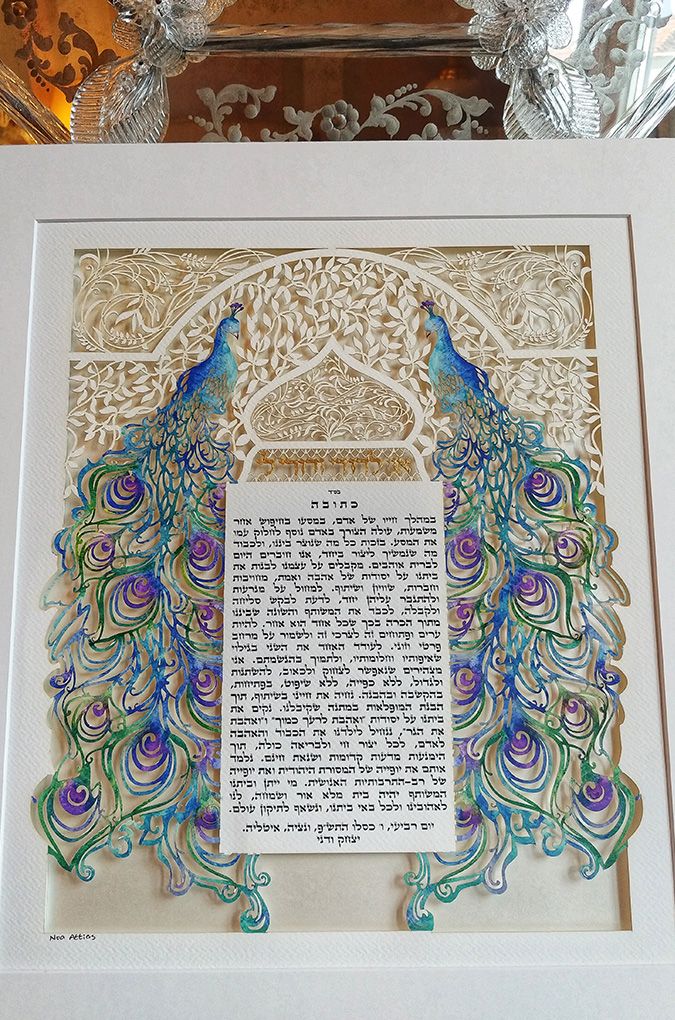 אני לדודי ודודי לי
בס״ד
כתובה
במהלך חייו של אדם, במסעו בחיפוש אחר
משמעות, עולה הצורך באדם נוסף לחלוק עמו
את המסע. בזכות כל מה שנוצר ביננו, ולכבוד
מה שנמשיך ליצור ביחד, אנו חוברים היום
לברית אוהבים. מקבלים על עצמנו לבנות את
ביתנו על יסודות של אהבה ואמת, מחויבות
וחברות, שוויון ושיתוף. למחול על מגרעות
ולהתגבר עליהן יחד, לדעת לבקש סליחה
ולקבלה, לכבד את המשותף והשונה שבינינו
מתוך הכרה בכך שכל אחד הוא אחר. להיות
ערים ופתוחים זה לצרכי זה ולשמור על מרחב
פרטי וזוגי. לעודד האחד את השני בגילוי
שאיפותיו וחלומותיו, ולתמוך בהגשמתם. אנו
מצהירים שנאפשר לצחוק ולכאוב, להשתנות
ולגדול, ללא כפייה, ללא שיפוט, בפתיחות,
בהקשבה ובהבנה. נחיה את חיינו בשיתוף, תוך
הבנת המופלאות במתנה שקיבלנו. נקים את
ביתנו על יסודות ״ואהבת לרעך כמוך״ ו״ואהבת
את הגר״, ננחיל לילדנו את הכבוד והאהבה
לאדם, לכל יצור חי ולבריאה כולה, תוך
הימנעות מדעות קדומות ושנאת חינם. נלמד
אותם את יופייה של המסורת היהודית ואת יופייה
של רב-התרבותיות האנושית. מי ייתן וביתנו
המשותף יהיה בית מלא אור ושמחה, לנו
לאהובינו ולכל באי ביתנו, ונשאף לתיקון עולם.
יום רביעי, ו כסלו התש״פ, ונציה, איטליה.
יצחק ודני
Noa Attias